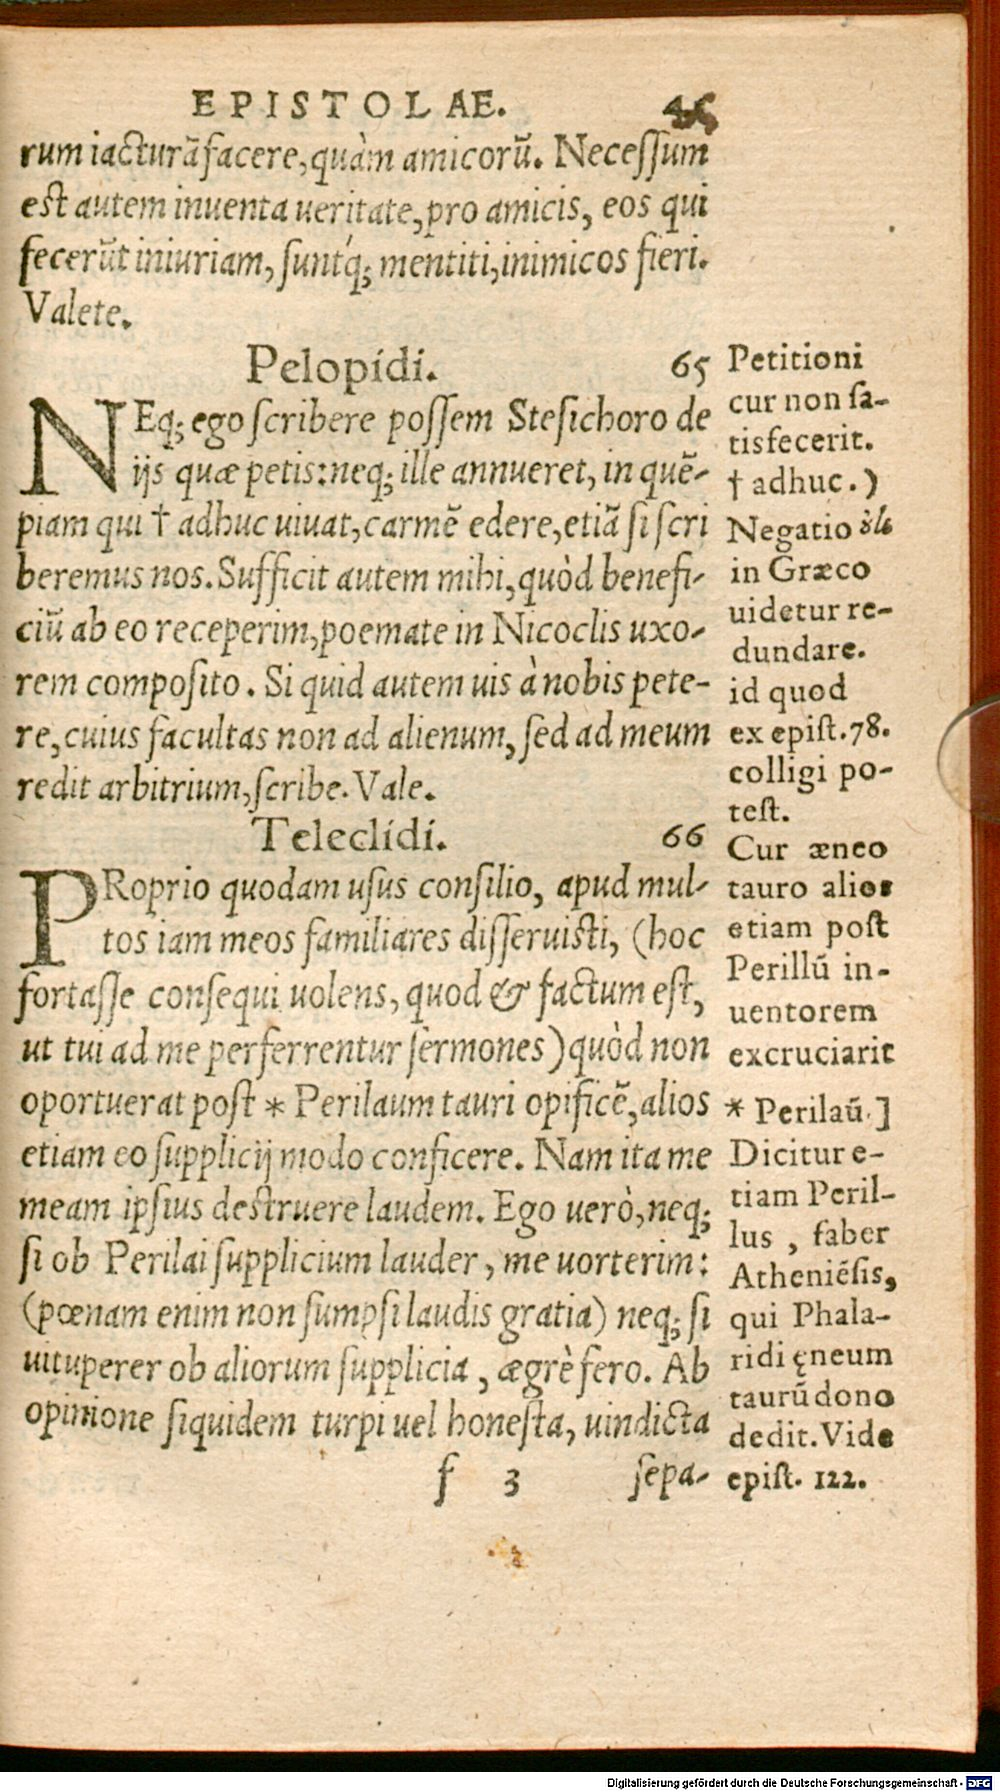 EPISTOLAE. 45
rum iacturã facere, quàm amicorũ. Necessum
est autem inuenta ueritate, pro amicis, eos qui
fecerũt iniuriam, suntq́; mentiti, inimicos fieri.
Valete.
Pelopidi. 65
NEq; ego scribere possem Stesichoro de
ijs quæ petis: neq; ille annueret, in quẽ-
piam qui † adhuc uiuat, carmẽ edere, etiã si scri
beremus nos. Sufficit autem mihi, quòd benefi-
ciũ ab eo receperim, poemate in Nicoclis uxo-
rem composito. Si quid autem uis à nobis pete-
re, cuius facultas non ad alienum, sed ad meum
redit arbitrium, scribe. Vale.
Teleclidi. 66
PRoprio quodam usus consilio, apud mul-
tos iam meos familiares disseruisti, (hoc
fortasse consequi uolens, quod & factum est,
ut tui ad me perferrentur sermones) quòd non
oportuerat post * Perilaum tauri opificẽ, alios
etiam eo supplicij modo conficere. Nam ita me
meam ipsius destruere laudem. Ego uerò, neq;
si ob Perilai supplicium lauder, me uorterim:
(pœnam enim non sumpsi laudis gratia) neq; si
uituperer ob aliorum supplicia, ægrè fero. Ab
opinione siquidem turpi uel honesta, uindicta
f 3 sepa-
Petitioni
cur non sa-
tisfecerit.
† adhuc.)
Negatio
in Græco
uidetur re-
dundare.
id quod
ex epist. 78.
colligi po-
test.
Cur æneo
tauro alios
etiam post
Perillũ in-
uentorem
excruciarit
* Perilaũ.]
Dicitur e-
tiam Peril-
lus, faber
Atheniẽsis,
qui Phala-
ridi ęneum
taurũ dono
dedit. Vide
epist. 122.
Digitalisierung gefördert durch die Deutsche Forschungsgemeinschaft - DFG